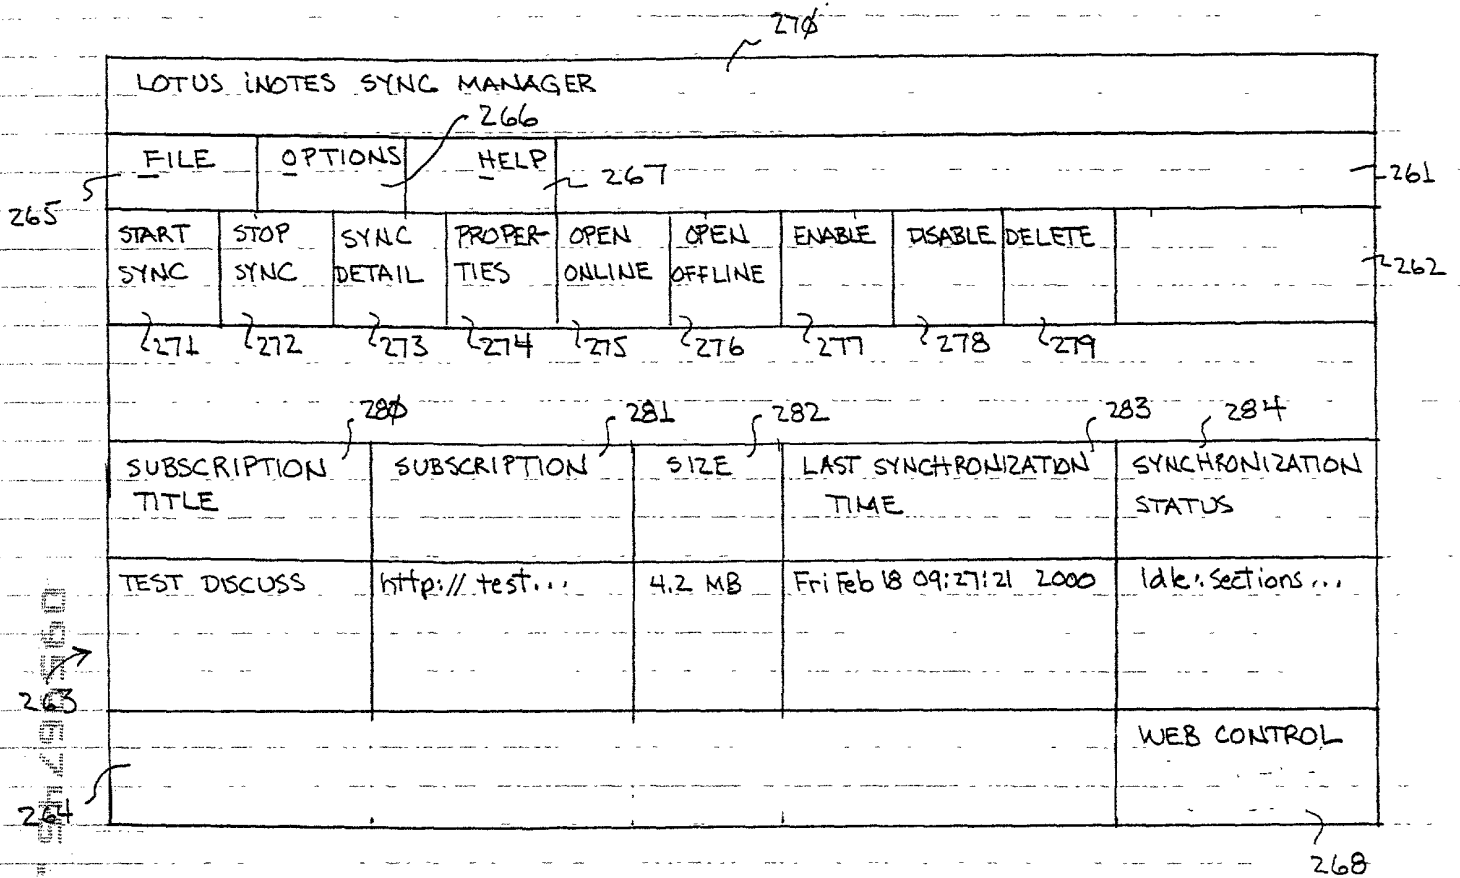 270
LOTUS iNOTES SYNC MANAGER
266
FILE OPTIONS HELP
267 261
265
START SYNC
STOP SYNC
SYNC DETAIL
PROPER-TIES
OPEN ONLINE
OPEN OFFLINE
ENABLE
DISABLE
DELETE
262
271 272 273 274 275 276 277 278 279
280 281 282 283 284
SUBSCRIPTION TITLE
SUBSCRIPTION
SIZE
LAST SYNCHRONIZATION TIME
SYNCHRONIZATION STATUS
TEST DISCUSS http://test... 4.2 MB Fri Feb 18 09:27:21 2000 Idle: Sections...
263
WEB CONTROL
264
268